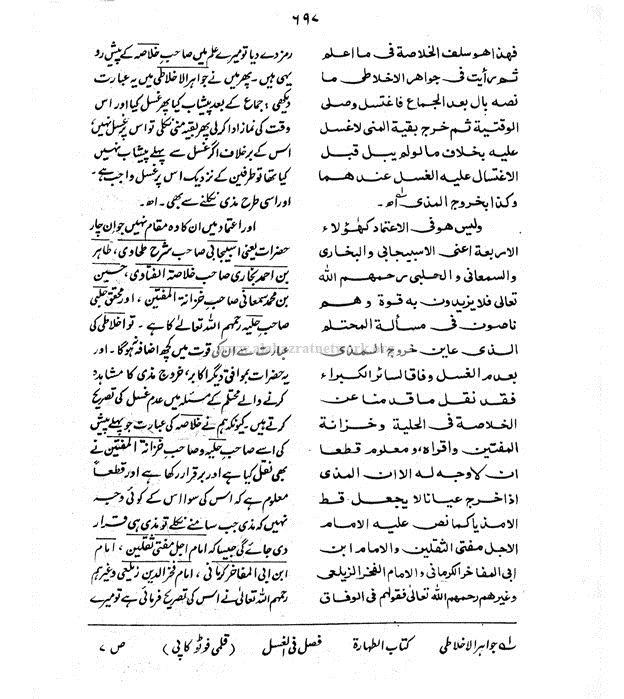 ۶۹۷
فهذا هو سلف الخلاصة فى ما اعلم
ثم رأيت فى جواهر الاخلاطى ما
نصه بال بعد الجماع فاغتسل وصلى
الوقتية ثم خرج بقية المنى لاغسل
عليه بخلاف مالو لم يبل قبل
الاغتسال عليه الغسل عندهما
وكذا بخروج المذى اھ۔
وليس هو فى الاعتماد كهٰؤلاء
الاربعة اعنى الاسبيجابى والبخارى
والسمعانى والحلبى رحمهم الله
تعالى فلايزيدون به قوة وهم
ناصون فى مسألة المحتلم
الذى عاين خروج المذى
بعدم الغسل وفاقا لسائر الكبراء
فقد نقل ما قدمنا عن
الخلاصة فى الحلية وخزانة
المفتين واقراه، ومعلوم قطعا
ان لاوجه له الا ان المذى
اذا خرج عيانا لايجعل قط
الامذيا كما نص عليه الامام
الاجل مفتى الثقلين والامام ابن
ابى المفاخر الكرمانى والامام الفخر الزيلعى
وغيرهم رحمهم الله تعالى فقولهم فى الوفاق
رمز دے دیا تو میرے علم میں صاحبِ خلاصہ کے پیش رو
یہی ہیں۔ پھر میں نے جواہر الاخلاطی میں یہ عبارت
دیکھی: جماع کے بعد پیشاب کیا پھر غسل کیا اور اس
وقت کی نماز ادا کر لی پھر بقیہ منی نکلی تو اس پر غسل نہیں
اس کے برخلاف اگر غسل سے پہلے پیشاب نہیں
کیا تھا تو طرفین کے نزدیک اس پر غسل واجب ہے۔
اور اسی طرح مذی نکلنے سے بھی۔ اھ۔
اور اعتماد میں ان کا وہ مقام نہیں جو ان چار
حضرات یعنی اسبیجابی صاحبِ شرح طحاوی، طاہر
بن احمد بخاری صاحبِ خلاصۃ الفتاوی، حسین
بن محمد سمعانی صاحبِ خزانۃ المفتین، اور محقق حلبی
صاحبِ حلیہ رحمہم اللہ تعالٰی کا ہے۔ تو اخلاطی کی
عبارت سے ان کی قوت میں کچھ اضافہ نہ ہوگا۔ اور
یہ حضرات بموافق دیگر اکابر، خروجِ مذی کا مشاہدہ
کرنے والے محتلم کے مسئلہ میں عدمِ غسل کی تصریح
کرتے ہیں۔ کیونکہ ہم نے خلاصہ کی عبارت جو پہلے پیش
کی اسے صاحبِ حلیہ و صاحبِ خزانۃ المفتین نے
بھی نقل کیا ہے اور برقرار رکھا ہے اور قطعاً
معلوم ہے کہ اس کی سوا اس کے کوئی وجہ
نہیں کہ مذی جب سامنے نکلے تو مذی ہی قرار
دی جائے گی جیسا کہ امام اجل مفتی ثقلین، امام
ابن ابی المفاخر کرمانی، امام فخر الدین زیلعی وغیرہم
رحمہم اللہ تعالٰی نے اس کی تصریح فرمائی ہے تو میرے
لہ جواہر الاخلاطی کتاب الطہارۃ فصل فی الغسل (قلمی فوٹو کاپی) ص ۷